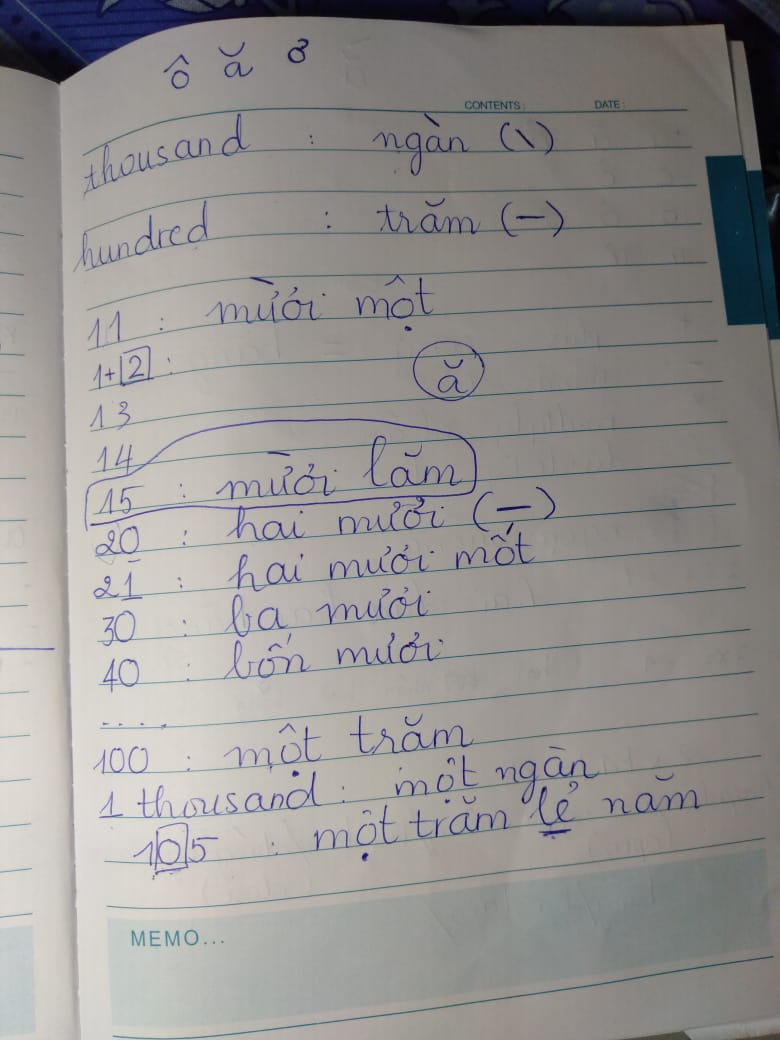 ô ă ơ
CONTENTS: DATE:
thousand : ngàn (\)
hundred : trăm (—)
11 : mười một
1+2 :
ă
13
14
15 : mười lăm
20 : hai mươi (—)
21 : hai mươi mốt
30 : ba mươi
40 : bốn mươi
.....
100 : một trăm
1 thousand : một ngàn
105 : một trăm lẻ năm
MEMO...